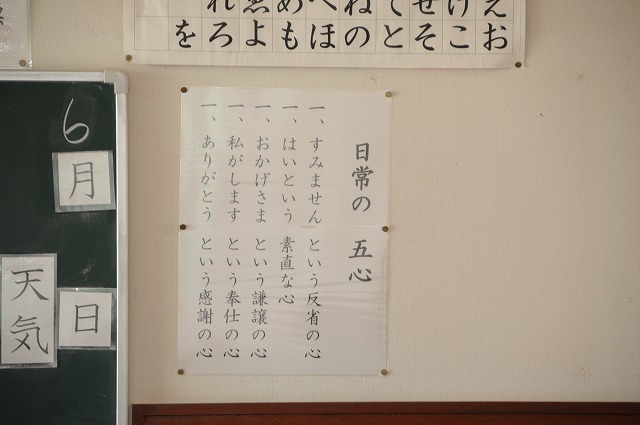 えお
けこ
せそ
てと
ねの
へほ
めも
ゑよ
れろ
を
日常の 五心
一、すみません という反省の心
一、はいという 素直な心
一、おかげさま という謙譲の心
一、私がします という奉仕の心
一、ありがとう という感謝の心
6
月
日
天気